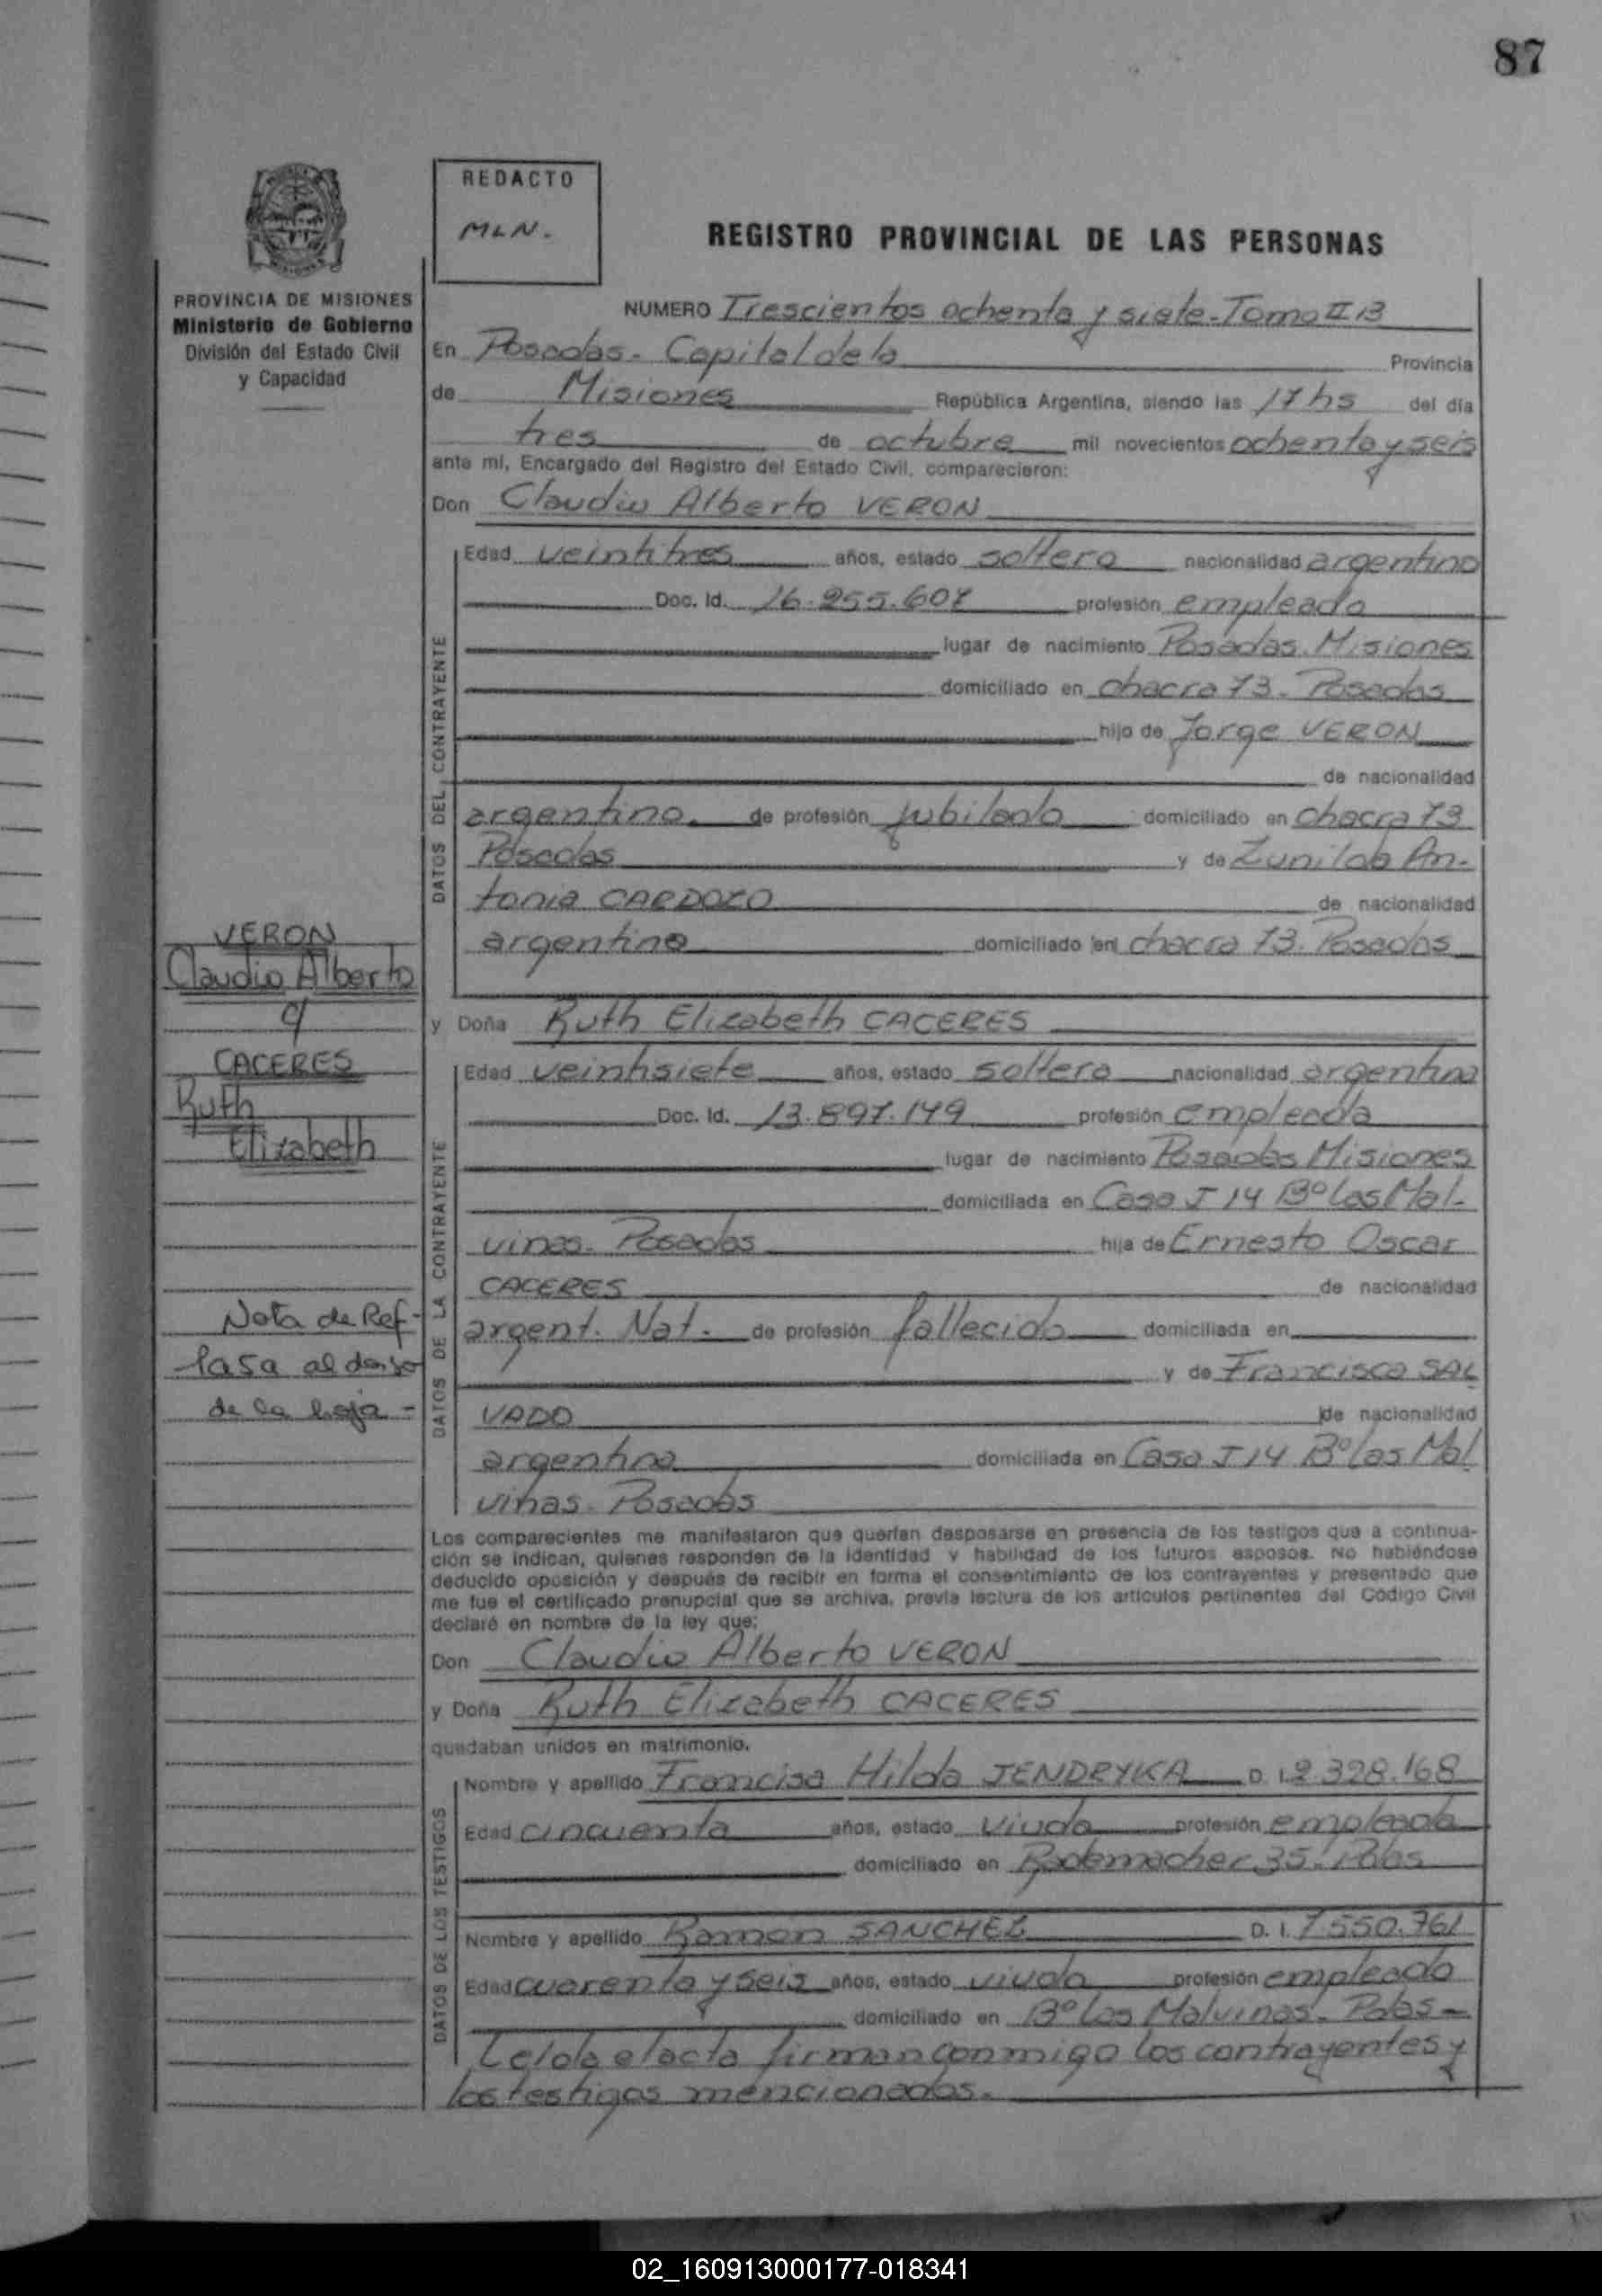 87
REDACTO
MLN.
REGISTRO PROVINCIAL DE LAS PERSONAS
PROVINCIA DE MISIONES
Ministerio de Gobierno
División del Estado Civil
y Capacidad
NUMERO Trescientos ochenta y siete-Tomo II B
En Posadas- Capital de la Provincia
de Misiones República Argentina, siendo las 17 hs del día
tres de octubre mil novecientos ochenta y seis
ante mí, Encargado del Registro del Estado Civil, comparecieron:
Don Claudio Alberto VERON
DATOS DEL CONTRAYENTE
Edad veintitres años, estado soltero nacionalidad argentino
Doc. Id. profesión empleado
lugar de nacimiento Posadas. Misiones
domiciliado en chacra 73- Posadas
hijo de Jorge VERON
de nacionalidad
argentino. de profesión jubilado domiciliado en chacra 73
Posadas y de Zunilda An-
tonia CARDOZO de nacionalidad
argentina domiciliado en chacra 73. Posadas
VERON
Claudio Alberto
c/
CACERES
Ruth
Elizabeth
y Doña Ruth Elizabeth CACERES
DATOS DE LA CONTRAYENTE
Edad veintisiete años, estado soltera nacionalidad argentina
Doc. Id. 13.897.149 profesión empleada
lugar de nacimiento Posadas Misiones
domiciliada en Casa J 14 Bº las Mal-
vinas- Posadas hija de Ernesto Oscar
CACERES de nacionalidad
argent. Nat. de profesión fallecido domiciliada en
y de Francisca SAL
VADO de nacionalidad
argentina domiciliada en Casa J 14 Bº las Mal
vinas- Posadas
Nota de Ref-
Pasa al dorso
de la hoja-
Los comparecientes me manifestaron que querían desposarse en presencia de los testigos que a continua-
ción se indican, quienes responden de la identidad y habilidad de los futuros esposos. No habiéndose
deducido oposición y después de recibir en forma el consentimiento de los contrayentes y presentado que
me fue el certificado prenupcial que se archiva, previa lectura de los artículos pertinentes del Código Civil
declaré en nombre de la ley que:
Don Claudio Alberto VERON
y Doña Ruth Elizabeth CACERES
quedaban unidos en matrimonio.
DATOS DE LOS TESTIGOS
Nombre y apellido Francisa Hilda JENDRYKA D. I. 2.328.168
Edad cincuenta años, estado viuda profesión empleada
domiciliado en Rademacher 35. Pdas
Nombre y apellido Ramón SANCHEZ D. I. 7.550.761
Edad cuarenta y seis años, estado viudo profesión empleado
domiciliado en Bº las Malvinas- Pdas-
Leida el acta firman conmigo los contrayentes y
los testigos mencionados.
02_160913000177-018341